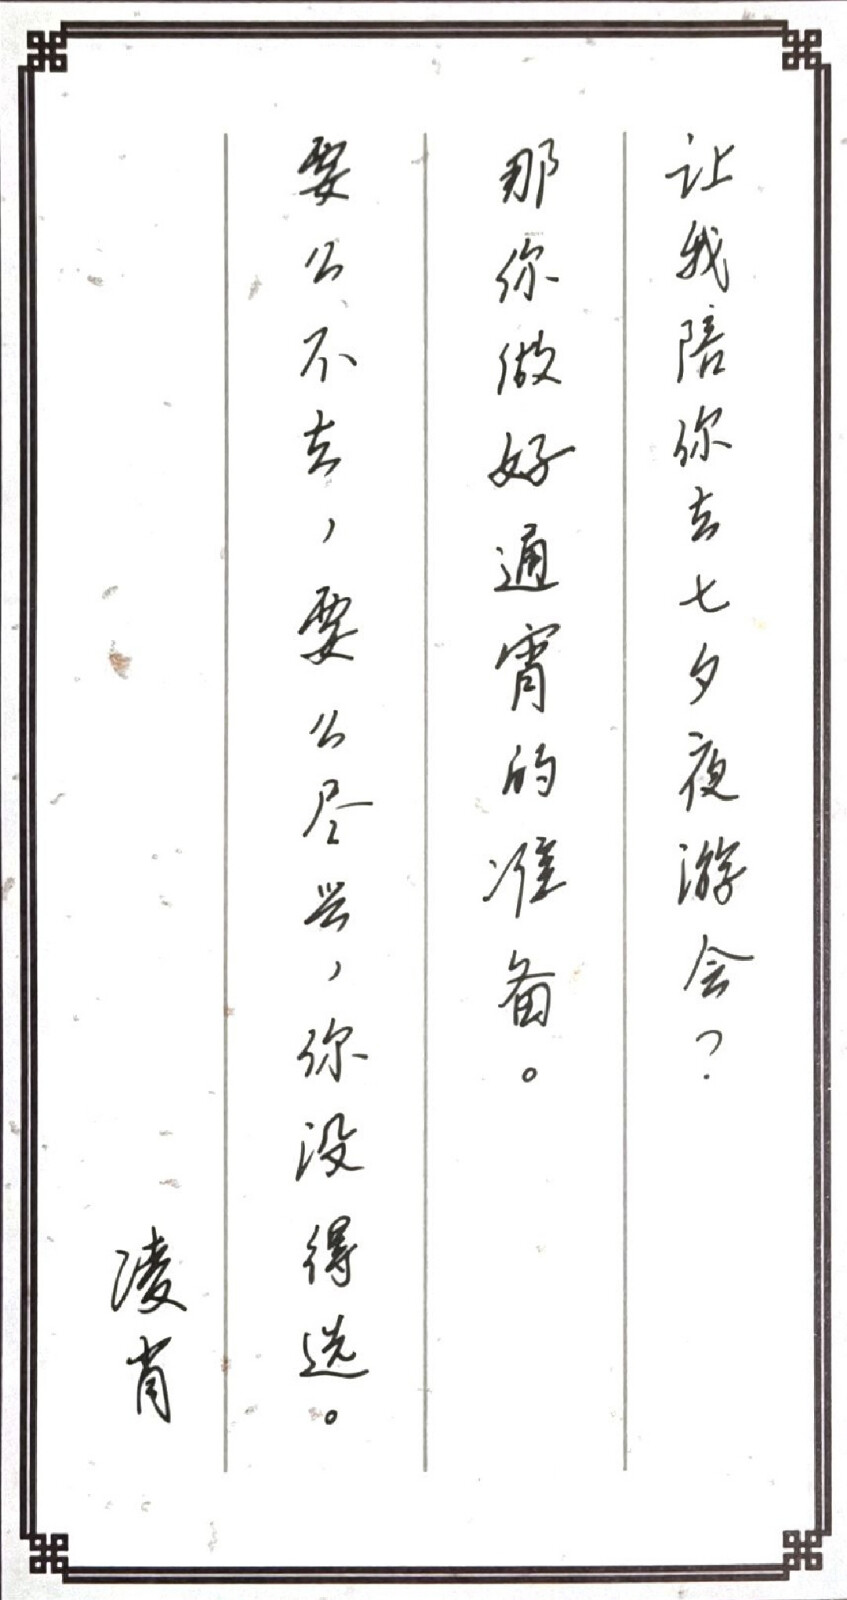 让我陪你去七夕夜游会？
那你做好通宵的准备。
要么不去，要么尽兴，你没得选。
凌肖